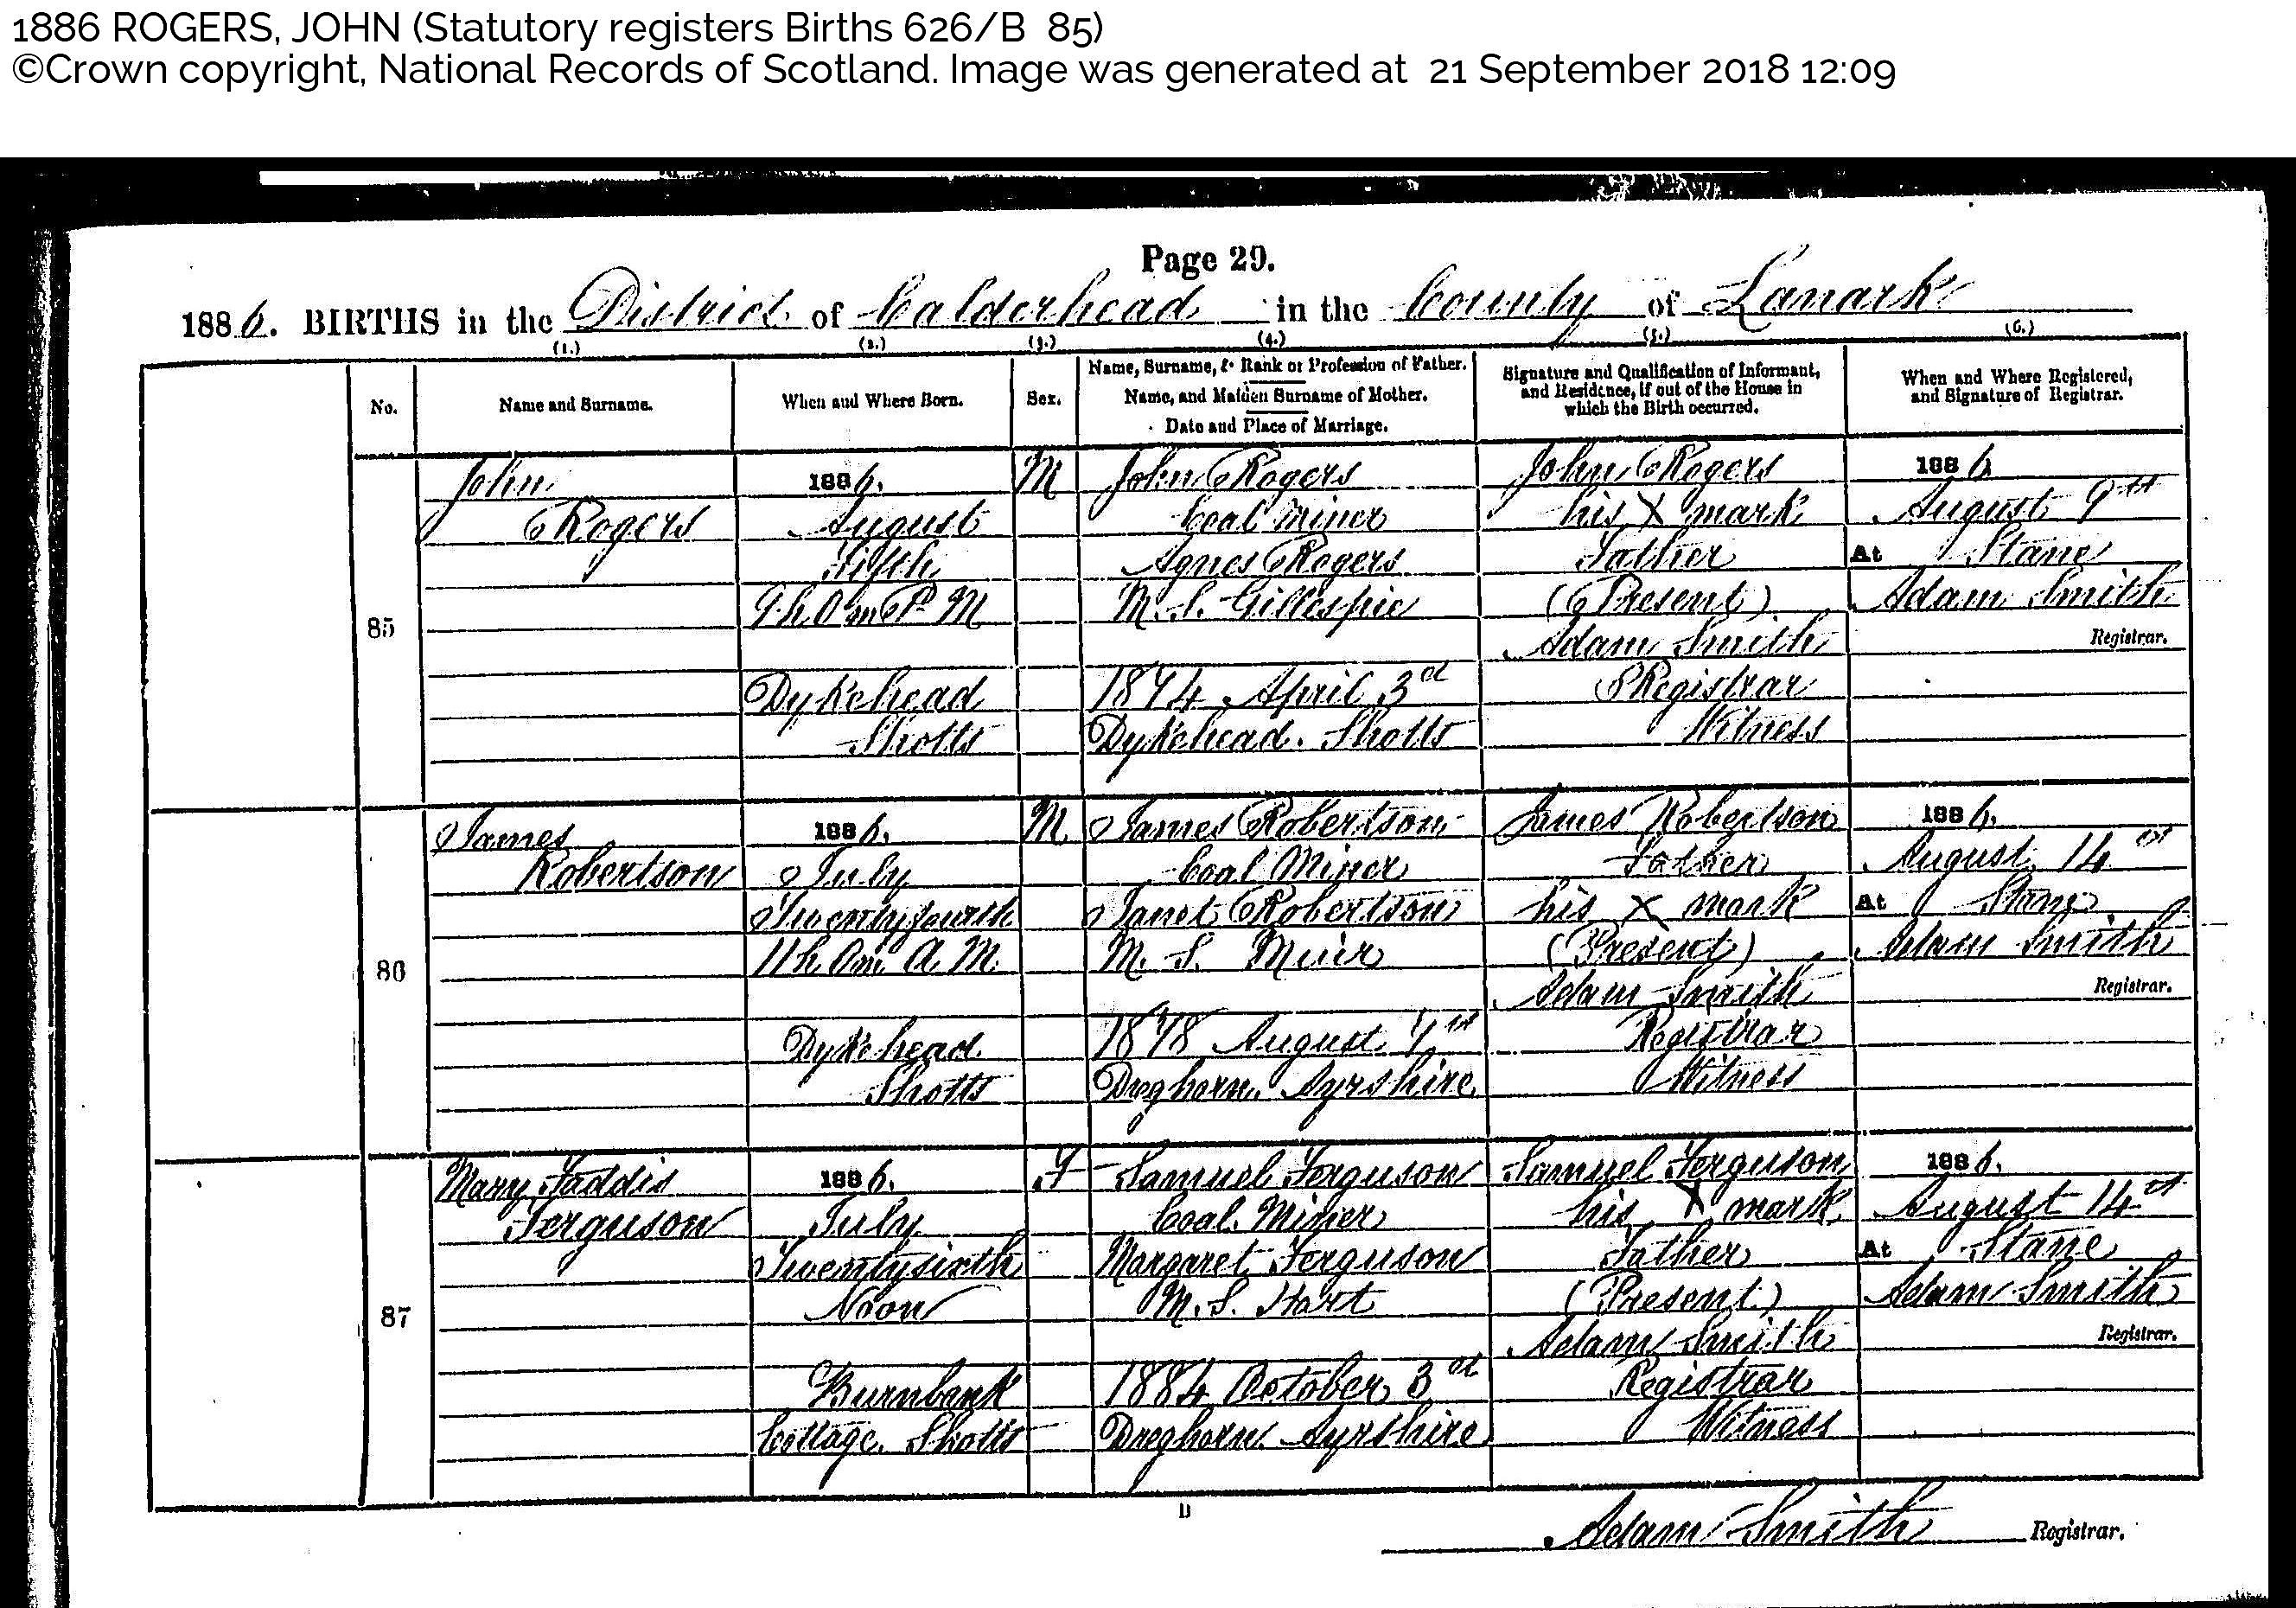 1886 ROGERS, JOHN (Statutory registers Births 626/B 85)
©Crown copyright, National Records of Scotland. Image was generated at 21 September 2018 12:09
Page 29.
1886. BIRTHS in the District of Calderhead in the County of Lanark
(1.) (2.) (3.) (4.) (5.) (6.)
No.
Name and Surname.
When and Where Born.
Sex.
Name, Surname, & Rank or Profession of Father.
Name, and Maiden Surname of Mother.
Date and Place of Marriage.
Signature and Qualification of Informant,
and Residence, if out of the House in
which the Birth occurred.
When and Where Registered,
and Signature of Registrar.
85
John
Rogers
1886.
August
Fifth
9 h. 0 m. P. M.
Dykehead
Shotts
M
John Rogers
Coal Miner
Agnes Rogers
M. S. Gillespie
1874 April 3d
Dykehead. Shotts
John Rogers
his X mark
Father
(Present)
Adam Smith
Registrar
Witness
1886
August 9th
At Stane
Adam Smith
Registrar.
86
James
Robertson
1886.
July
Twentyfourth
11 h. 0 m. A. M.
Dykehead
Shotts
M
James Robertson
Coal Miner
Janet Robertson
M. S. Muir
1878 August
Dreghorn. Ayrshire
James Robertson
Father
his X mark
(Present)
Adam Smith
Registrar
Witness
1886.
August 14
At Stane
Adam Smith
Registrar.
87
Mary Faddis
Ferguson
1886.
July
Twentysixth
Noon
Burnbank
Cottage. Shotts
F
Samuel Ferguson
Coal Miner
Margaret Ferguson
M. S. Hart
1884 October 3d
Dreghorn. Ayrshire
Samuel Ferguson
his X mark
Father
(Present)
Adam Smith
Registrar
Witness
1886.
August 14
At Stane
Adam Smith
Registrar.
D
Adam Smith Registrar.